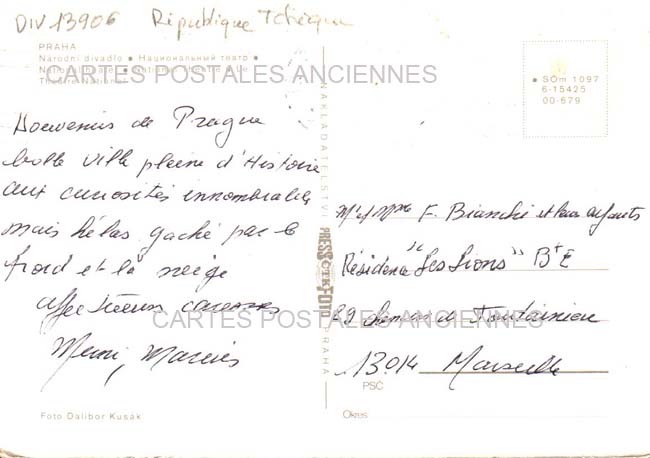 DIV 13906 République Tchèque
PRAHA
Národní divadlo ● Национальный театр ●
National theatre ● Théâtre National
CARTES POSTALES ANCIENNES
Souvenirs de Prague
belle ville pleine d'Histoire
aux curiosités innombrables
mais hélas gaché par le
froid et la neige
affectueux caresses
CARTES POSTALES ANCIENNES
Foto Dalibor Kusák
NAKLADATELSTVÍ PRESSFOTO PRAHA
ČTK
● SOm 1097
6-15425
00-679
Mr et Mme F. Bianchi et leurs enfants
Résidence "Les Lions" Bt E
29 Chemin de Fontainieu
13014 Marseille
PSČ
Okres